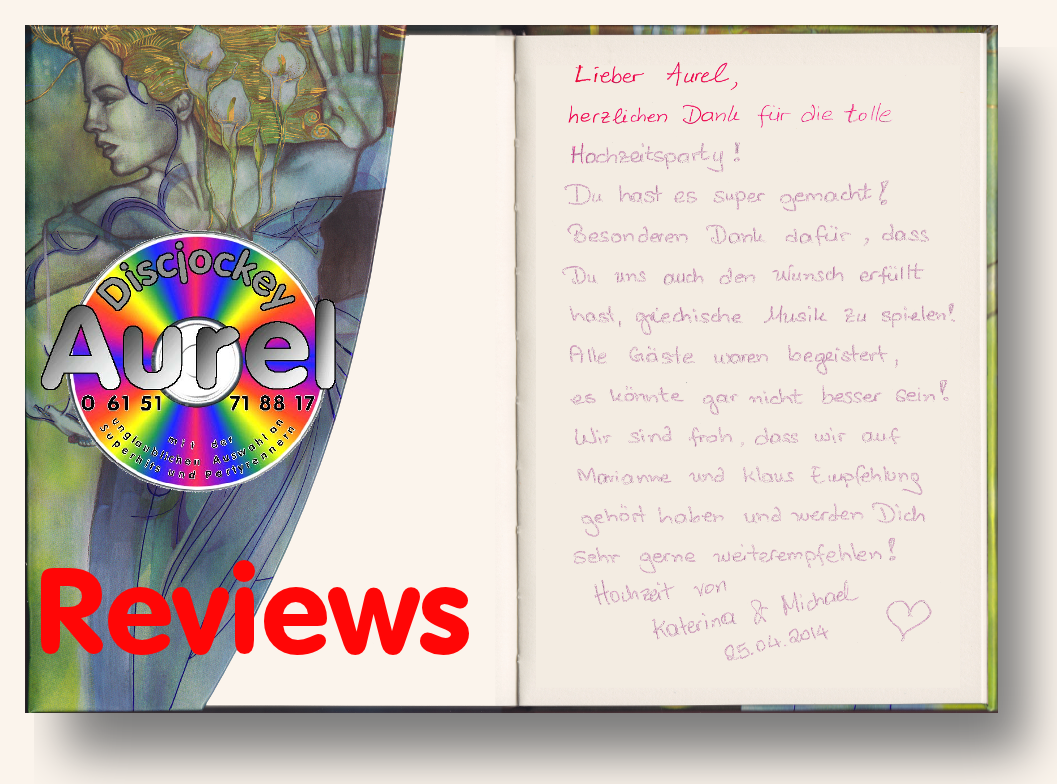 Discjockey
Aurel
0 61 51 71 88 17
mit der
unglaublichen Auswahl an
Superhits und Partyrennern
Reviews
Lieber Aurel,
herzlichen Dank für die tolle
Hochzeitsparty!
Du hast es super gemacht!
Besonderen Dank dafür, dass
Du uns auch den Wunsch erfüllt
hast, griechische Musik zu spielen!
Alle Gäste waren begeistert,
es könnte gar nicht besser sein!
Wir sind froh, dass wir auf
Marianne und Klaus Empfehlung
gehört haben und werden Dich
sehr gerne weiterempfehlen!
Hochzeit von
Katerina & Michael
25.04.2014